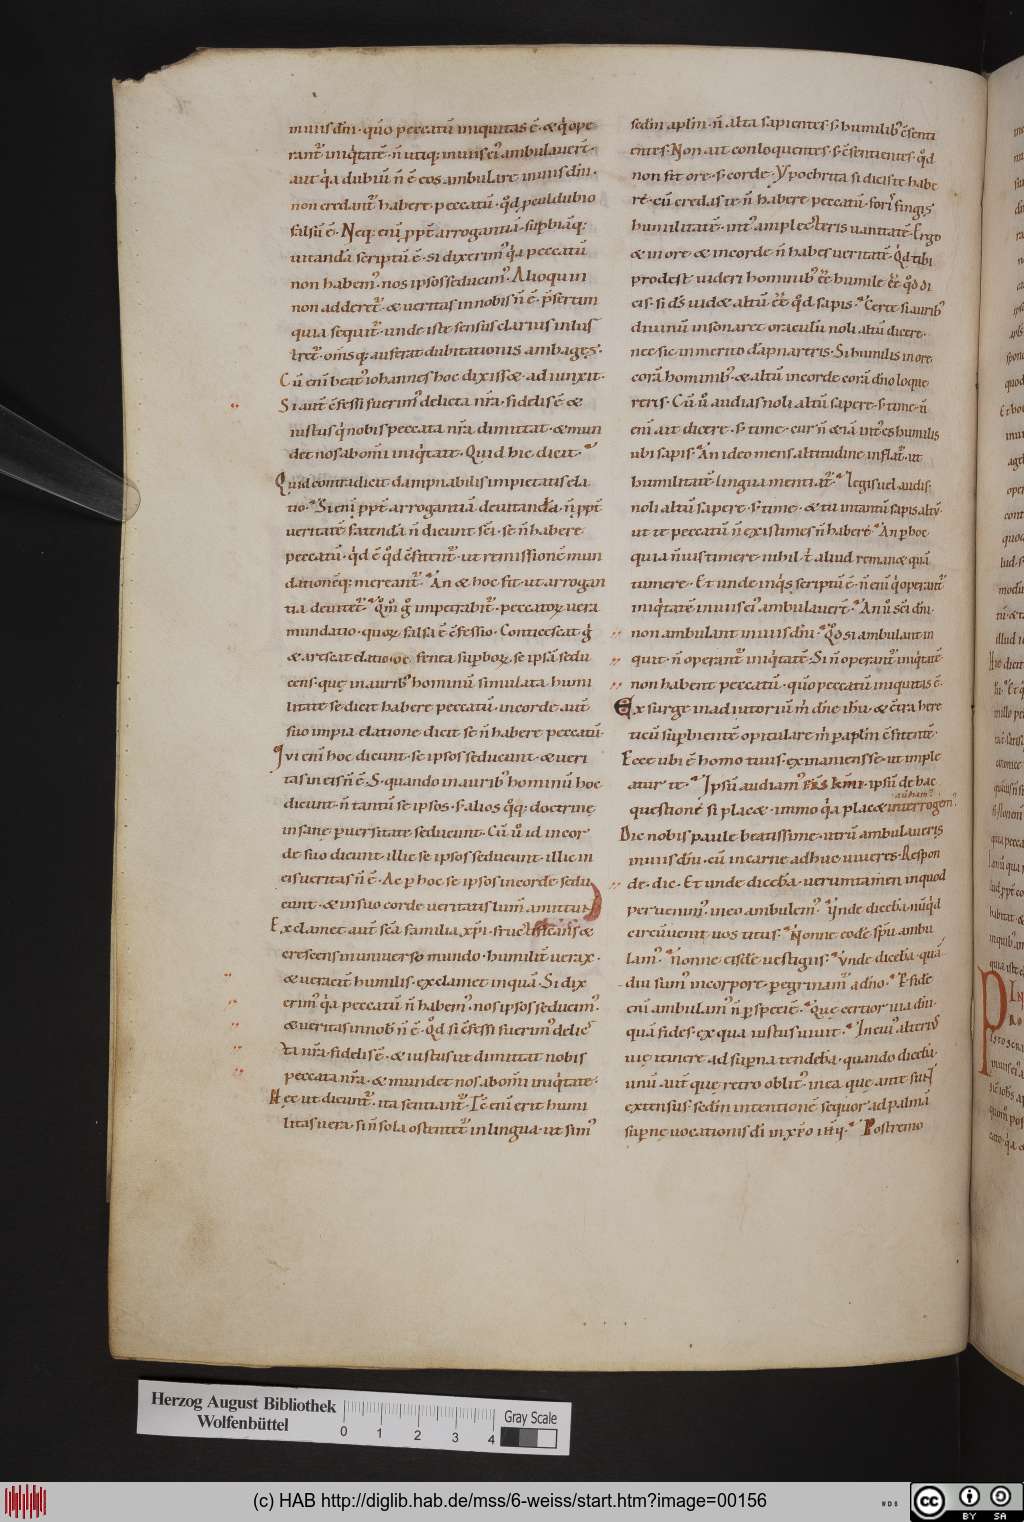 in uiis dñi· qūo peccatū iniquitas ē· & q̇ ope
rant᷒ iniq̇tatē· ñ utiq; in uiis ei᷒ ambulauer̄t·
aut q̇a dubiū ñ ē eos ambulare in uiis dñi·
non credant᷒ habere peccatū· q̊d pculdubio
falsū ē· Neq; eni ppt̄ arrogantiā· supbiāq;
uitandā scriptū ē· si dixerim᷒ q̇a peccatū
non habem᷒· nos ipsos seducim᷒· Alioquin
non adderet᷒· & ueritas in nobis ñ ē· p̄sertim
quia sequit᷒· unde iste sensus clarius inlus
tret᷒· om̄sq; auferat dubitationis ambages·
Cū eni beat᷒ iohannes hoc dixiss&· adiunxit·
Si aut̄ c̄fessi fuerim᷒ delicta nr̄a· fidelis ē &
iustus q̇ nobis peccata nr̄a dimittat· & mun
det nos ab om̄i iniq̇tate· Quid hic dicit·
Quid contradicit dampnabilis impietatis ela
tio· Si eni ppt̄ arrogantiā deuitandā· ñ ppt̄
ueritatē fatendā ñ dicunt sc̄i· se ñ habere
peccatū· q̇d ē q̊d c̄fitent᷒· ut remissionē mun
dationēq; mereant᷒· An & hoc fit· ut arrogan
tia deuitet᷒· Qm̄ g̊ impetrabit᷒· peccatoꝝ uera
mundatio· quoꝝ falsa ē c̄fessio· Conticescat g̊
& arescat elatio
cens· quę in aurib᷒ hominū simulata humi
litate se dicit habere peccatū· in corde aut̄
suo impia elatione dicit se ñ habere peccatū·
Qui eni hoc dicunt· se ipsos seducunt· & ueri
tas in eis ñ ē· S· quando in aurib᷒ hominū hoc
dicunt· ñ tantū se ipsos· s· alios q̊q; doctrinę
insanę puersitate seducunt· Cū u̇ id in cor
de suo dicunt· illic se ipsos seducunt· illic in
eis ueritas ñ ē· Ac p hoc se ipsos in corde sedu
cunt· & in suo corde ueritatis lum̄ amittunt
Exclamet aut̄ sc̄a familia xp̄i· fructificans &
crescens in uniuerso mundo· humilit̄ uerax·
& ueracit̄ humilis· exclamet inquā· Si dix
erim᷒ q̇a peccatū ñ habem᷒· nos ipsos seducim᷒·
& ueritas in nob᷒ ñ ē· Q̊d si c̄fessi fuerim᷒ delic
ta nr̄a· fidelis ē· & iustus ut dimittat nobis
peccata nr̄a· & mundet nos ab om̄i iniq̇tate·
Hęc ut dicunt᷒· ita sentiant᷒· Tc̄ eni erit humi
litas uera· si ñ sola ostentet᷒ in lingua· ut sim᷒
sedm aplm· ñ alta sapientes· s· humilib᷒ c̄senti
entes· Non ait conloquentes· s· c̄sentientes· q̊d
non fit ore· s· corde· Ypochrita si dicis te habe
re· cū credas te ñ habere peccatū· foris fingis
humilitatē· int᷒ amplecteris uanitatē· Ergo
& in ore· & in corde ñ habes ueritatē· Q̇d tibi
prodest uideri hominib᷒ ēē humile ēē q̊d di
cis· si ds̄ uid& altū ēē q̊d sapis· Certe si aurib᷒
diuinū insonaret oraculū noli altū dicere·
nec sic inmerito dāpnareris· Si humilis in ore
corā hominib᷒· & altū in corde corā dño loque
reris· Cū u̇ audias noli altū sapere· s· time· ñ
eni ait dicere· s· time· cur ñ & iā int᷒ es humilis
ubi sapis· An ideo mens altitudine inflat᷒· ut
humilitatē· lingua mentiat᷒· Legis uel audis·
noli altū sapere· s· time· & tu intantū sapis altū·
ut te peccatū ñ existimes ñ habere· An p hoc
quia ñ uis timere· nihil t̄ aliud reman& quā
tumere· Et unde inq̇s scriptū ē· ñ eni q̇ operant᷒
iniq̇tatē in uiis ei᷒ ambulauer̄t· An u̇ sc̄i dñi·
non ambulant in uiis dñi· Q̊d si ambulant in
quit· ñ operant᷒ iniq̇tatē· Si ñ operant᷒ iniq̇tatē
non habent peccatū· qūo peccatū iniquitas ē·
Exsurge in adiutoriū m̄ dñe ihū· & c̄tra here
ticū supbientē opitulare m̄ p aplm c̄fitentē·
Ecce ubi ē homo tuus· exinaniens se· ut imple
atur te· Ipsū audiam᷒ · ipsū de hac
questionē si plac&· immo q̇a plac& interrogem᷒·
Dic nobis paule beatissime· utrū ambulaueris
in uiis dñi· cū in carne adhuc uiueres· Respon
de· dic· Et unde dicebā· uerumtamen in quod
peruenim᷒· in eo ambulem᷒· Unde dicebā· nūq̇d
circūuenit uos titus· Nonne eodē spū ambu
lam᷒· nonne eisdē uestigiis· Unde dicebā· quā
diu sum᷒ in corpore· peregrinam᷒ a dño· P fidē
eni ambulam᷒ ñ p speciē· Quę certior uia dñi·
quā fides· ex qua iustus uiuit· In cui᷒ alterius
uię itinere ad supna tendebā· quando dicebā·
unū aut̄ quę retro oblit᷒· in ea quę ante sunt
extensus· sedm intentionē sequor ad palmā
supnę uocationis dī in xp̄o ihū· Postremo
Herzog August Bibliothek
Wolfenbüttel
0 1 2 3 4
Gray Scale
(c) HAB http://diglib.hab.de/mss/6-weiss/start.htm?image=00156
cc BY SA